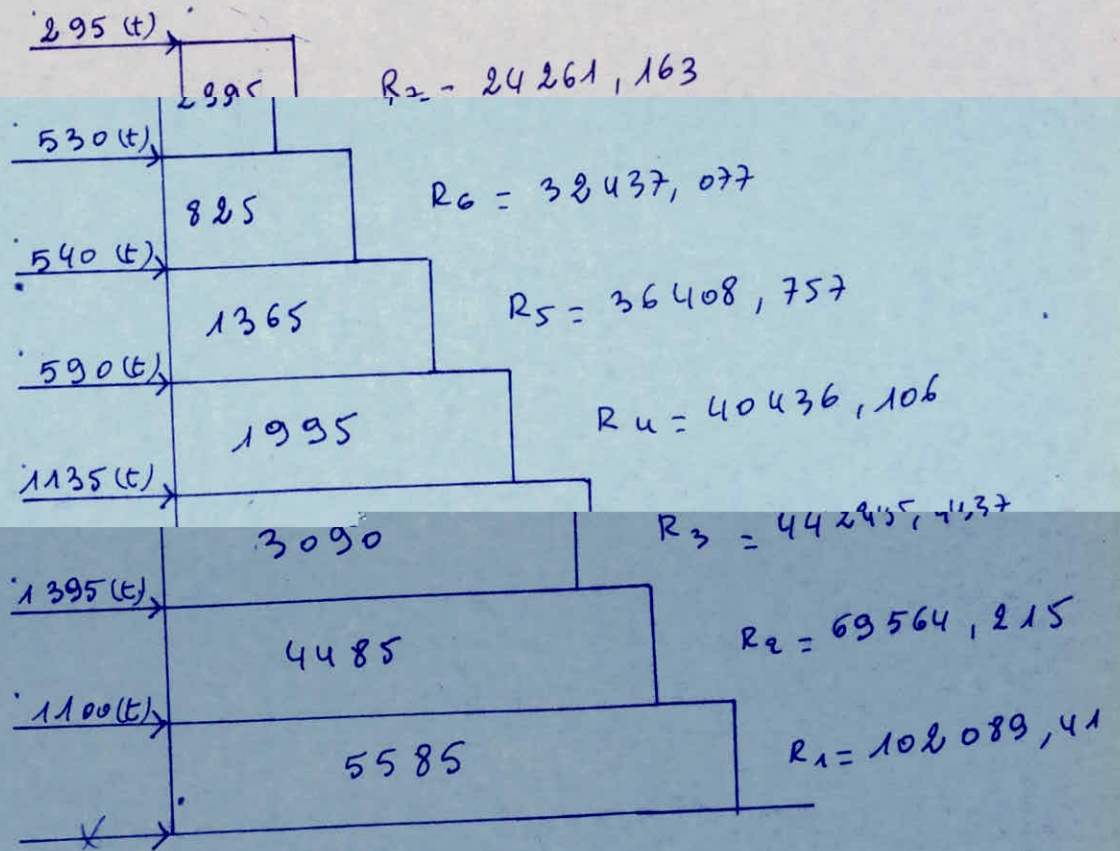 295 (t)
2995
24261,163
530 (t)
825
R6 = 32437,077
540 (t)
1365
R5 = 36408,757
590 (t)
1995
R4 = 40436,106
1135 (t)
3090
R3 =
1395 (t)
4485
R2 = 69564,215
1100 (t)
5585
R1 = 102089,41
X